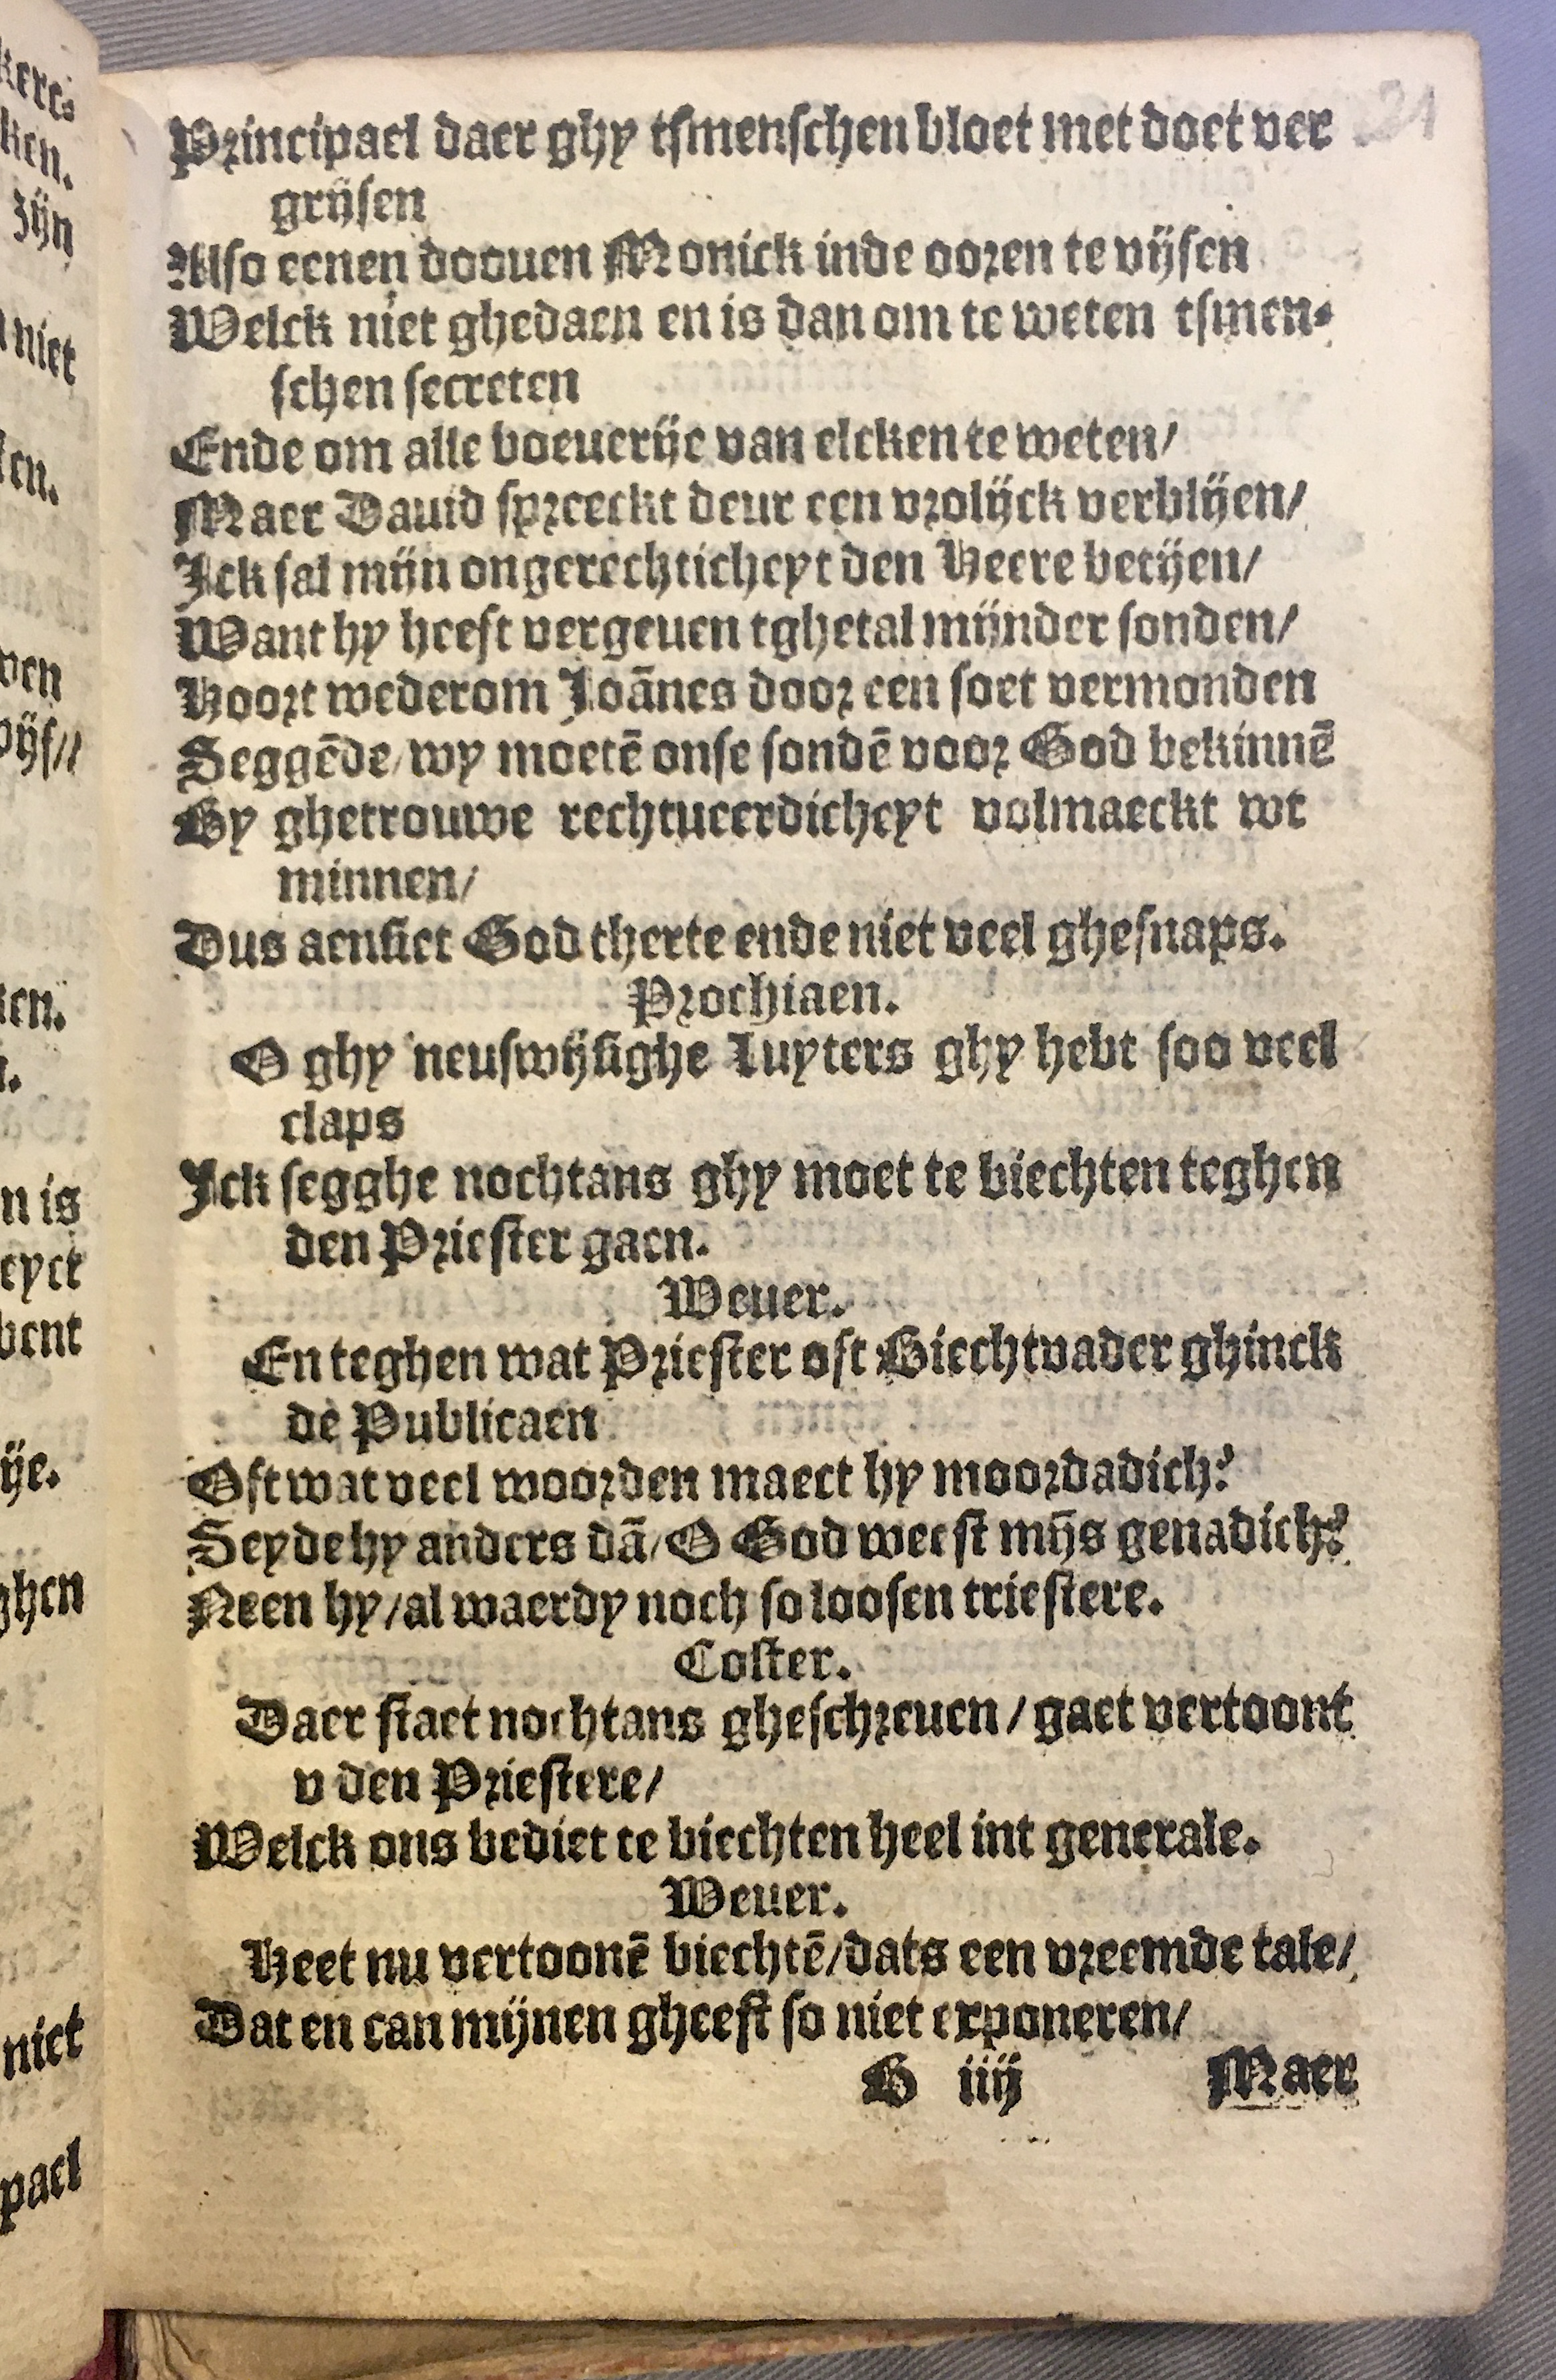 21
Principael daer ghy tsmenschen bloet met doet ver
grijsen
Also eenen doouen Monick inde ooren te vijsen
Welck niet ghedaen en is dan om te weten tsmen-
schen secreten
Ende om alle boeuerije van elcken te weten/
Maer Dauid spreeckt deur een vrolijck verblijen/
Ick sal mijn ongerechticheyt den Heere betijen/
Want hy heeft vergeuen tghetal mijnder sonden/
Hoort wederom Joānes door een soet vermonden
Seggēde/wy moetē onse sondē voor God bekinnē
By ghetrouwe rechtueerdicheyt volmaeckt wt
minnen/
Dus aensiet God therte ende niet veel ghesnaps.
Prochiaen.
O ghy neuswijsighe Luyters ghy hebt soo veel
claps
Ick segghe nochtans ghy moet te biechten teghen
den Priester gaen.
Weuer.
En teghen wat Priester oft Biechtvader ghinck
de Publicaen
Oft wat veel woorden maect hy moordadich?
Seyde hy anders dā/O God weest mijs genadich?
Neen hy/al waerdy noch so loosen triestere.
Coster.
Daer staet nochtans gheschreuen/gaet vertoont
v den Priestere/
Welck ons bediet te biechten heel int generale.
Weuer.
Heet nu vertoonē biechtē/dats een vreemde tale/
Dat en can mijnen gheest so niet exponeren/
B iiij Maer
kers
ken.
zijn
niet
ken.
ven
ken.
n is
eyct
bent
ije.
ghen
niet
pael